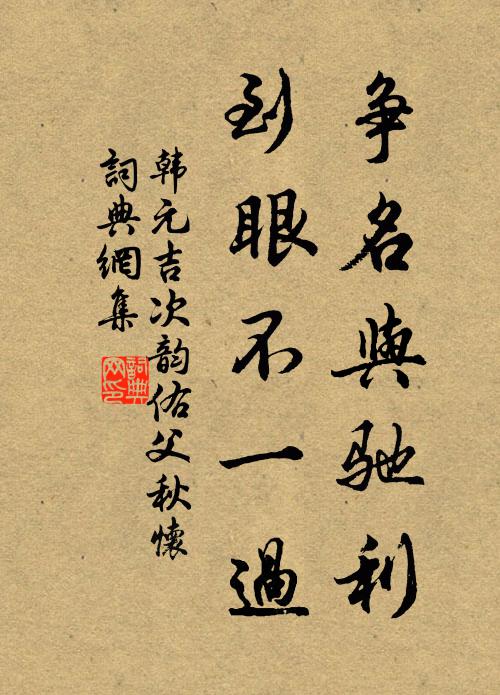 争名與驰利
到眼不一過
韩元吉次韵佑父秋懷
詞典網集
詞典
网印